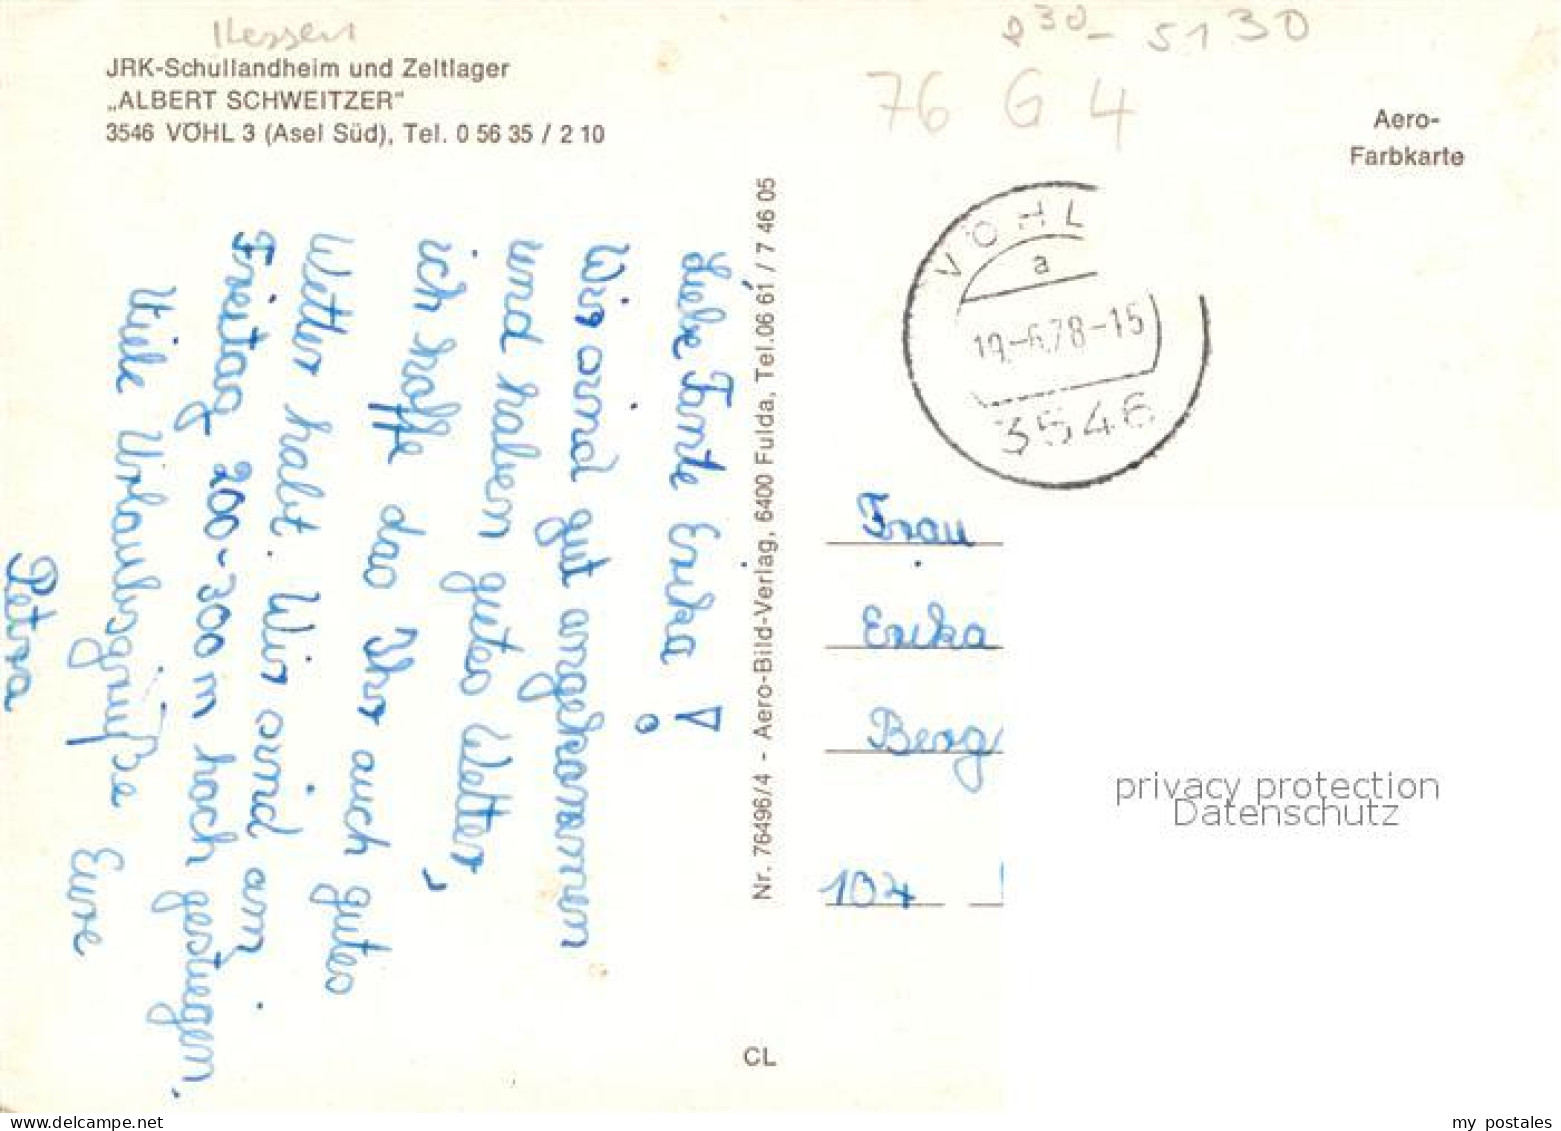 Hessen
JRK-Schullandheim und Zeltlager
„ALBERT SCHWEITZER"
3546 VÖHL 3 (Asel Süd), Tel. 0 56 35 / 2 10
030- 5130
76 G 4
Aero-
Farbkarte
VÖHL
a
19.-6.78-15
3546
Liebe Tante Erika!
Wir sind gut angekommen
und haben gutes Wetter,
ich hoffe das Ihr auch gutes
Wetter habt. Wir sind am
Freitag 200-300 m hoch gestiegen.
Viele Urlaubsgrüße Eure
Petra
Nr. 76496/4 - Aero-Bild-Verlag, 6400 Fulda, Tel. 06 61 / 7 46 05
CL
Frau
Erika
Berg
104
privacy protection
Datenschutz
my postales